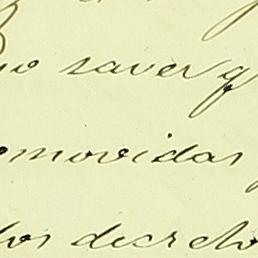 no saver q
omovidas
los decreto